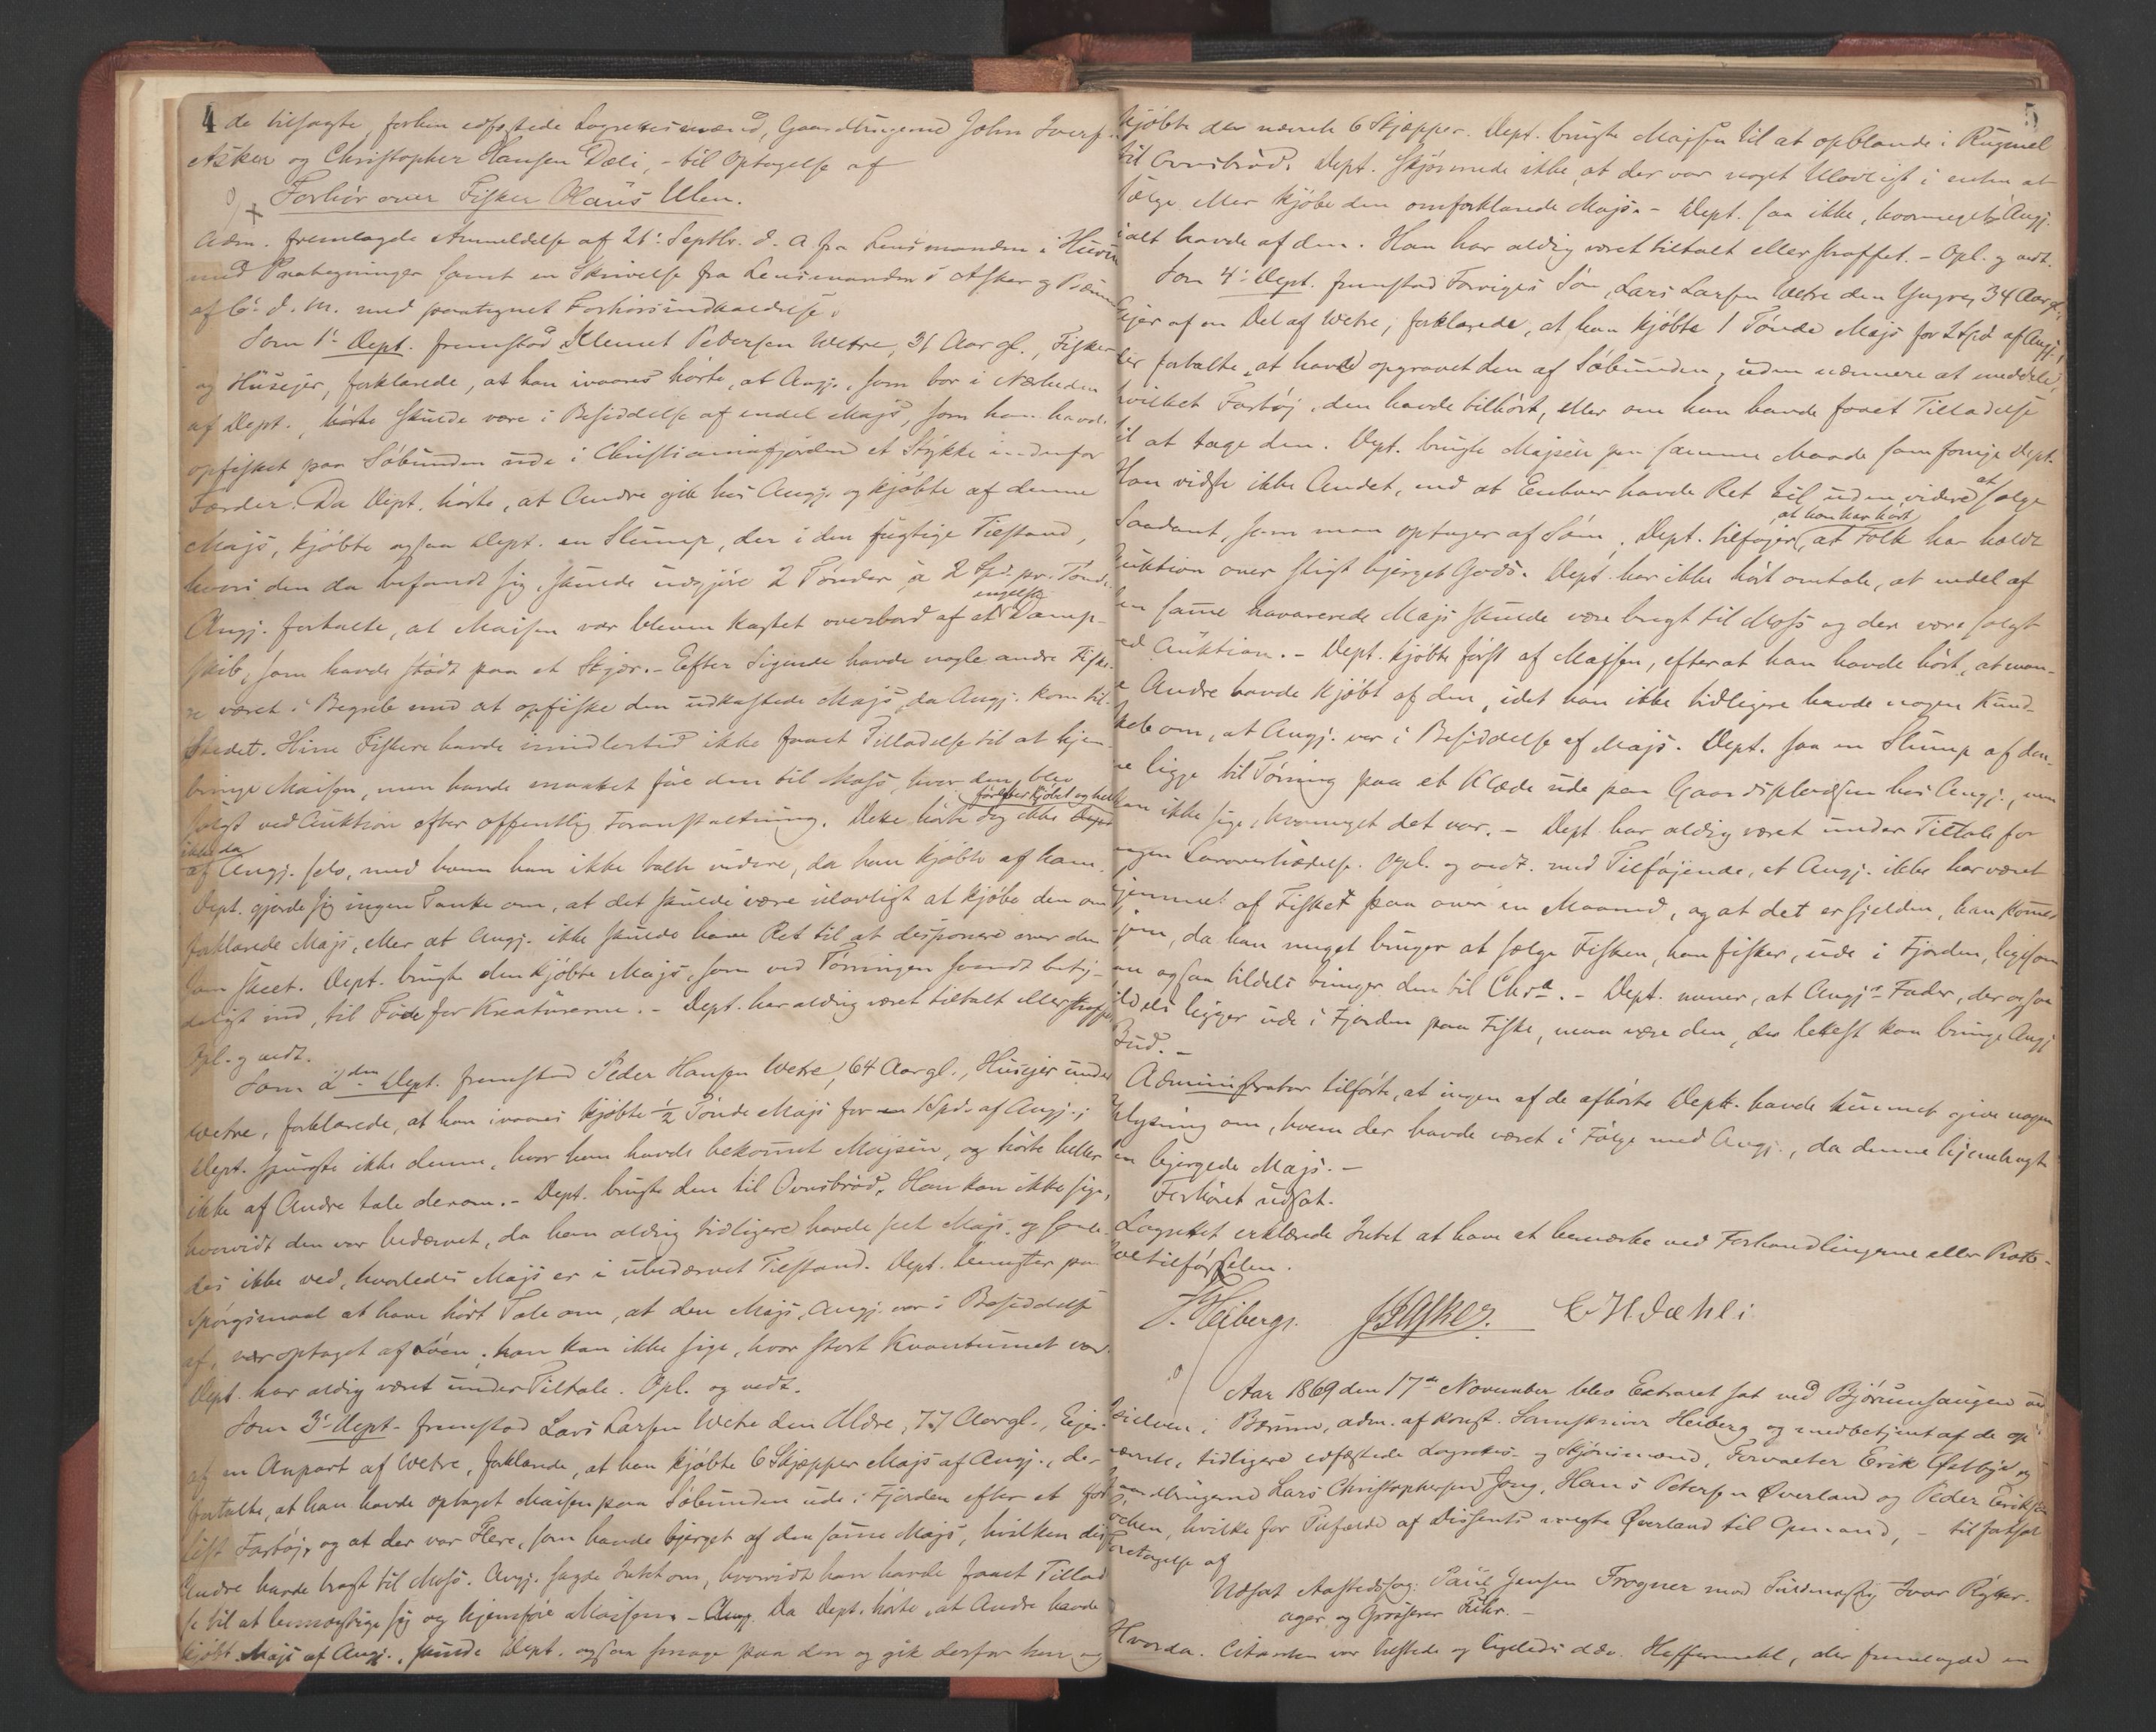 4
de tilsagte, forhen edfæstede Lagrettesmænd, Gaardbrugerne John
Asker og Christopher Hansen Dæli, - til Optagelse af
Forhør over Fisker Olaus Ulen.
Adm. fremlagde Anmeldelse af 21' Septbr. d. A. fra Lensmanden i
med Paategninger samt en Skrivelse fra Lensmanden i Asker og Bærum
af 6. d. M. med paategnet Forhørsindkaldelse.
Som 1' Dept. fremstod Klemet Pedersen Wetre, 31 Aar gl., Fisker
og Huseier, forklarede, at han ivaares hørte, at Angj., som bor i Nærheden
af Dept., skulde være i Besiddelse af endel Majs, som han havde
opfisket paa Søbunden ude i Christianiafjorden et Stykke indenfor
Færder. Da Dept. hørte, at Andre gik hos Angj. og kjøbte af denne
Majs, kjøbte ogsaa Dept. en Slump, der i den fugtige Tilstand,
hvori den da befandt sig, skulde udgjøre 2 Tønder à 2 Spd. pr. Tønde.
Angj. fortalte, at Maisen var bleven kastet overbord af et engelsk Damp-
skib, som havde stødt paa et Skjær. - Efter Sigende havde nogle andre Fiske-
re været i Begreb med at opfiske den udkastede Majs, da Angj. kom til-
stedet. Hine Fiskere havde imidlertid ikke faaet Tilladelse til at hjem-
bringe Maisen, men havde maattet føre den til Moss, hvor den blev
solgt ved Auktion efter offentlig Foranstaltning. Dette hørte dog ikke Dept. før efter Kjøbet og heller
ikke da af Angj. selv, med hvem han ikke talte videre, da han kjøbte af ham.
Dept. gjorde sig ingen Tanke om, at det skulde være ulovligt at kjøbe den om-
forklarede Majs, eller at Angj. ikke skulde have Ret til at disponere over den
som skeet. Dept. brugte den kjøbte Majs, som ved Tørringen svandt bety-
deligt ind, til Føde for Kreaturerne. - Dept. har aldrig været tiltalt eller straffet.
Opl. og vedt.
Som 2den Dept. fremstod Peder Hansen Wetre, 64 Aar gl., Huseier under
Wetre, forklarede, at han ivaares kjøbte ½ Tønde Majs for 1 Spd. af Angj.;
Dept. spurgte ikke denne, hvor han havde bekommet Majsen, og hørte heller
ikke af Andre tale derom. - Dept. brugte den til Ovnsbrød. Han kan ikke sige,
hvorvidt den var bedærvet, da han aldrig tidligere havde seet Majs og saale-
des ikke ved, hvorledes Majs er i ubedærvet Tilstand. Dept. benegter paa
Spørgsmaal at have hørt Tale om, at den Majs, Angj. var i Besiddelse
af, var optaget af Søen; han kan ikke sige, hvor stort Kvantumet var.
Dept. har aldrig været under Tiltale. Opl. og vedt.
Som 3' Dept. fremstod Lars Larsen Wetre den Ældre, 77 Aar gl., Eier
af en Anpart af Wetre, forklarede, at han kjøbte 6 Skjæpper Majs af Angj., der
fortalte, at han havde optaget Maisen paa Søbunden ude i Fjorden efter et for-
list Fartøj, og at der var Flere, som havde bjerget af den samme Majs, hvilken disse
Andre havde bragt til Moss. Angj. sagde Intet om, hvorvidt han havde faaet Tilladel-
se til at bemægtige sig og hjemføre Maisen. - Da Dept. hørte, at Andre havde
kjøbt Majs af Angj., skulde Dept. ogsaa smage paa den og gik derfor hen og
5
kjøbte den nævnte 6 Skjæpper. Dept. brugte Majsen til at opblande i Rugmel
til Ovnsbrød. Dept. skjønnede ikke, at der var noget Ulovligt i enten at
sælge eller kjøbe den omforklarede Majs. - Dept. saa ikke, hvormeget Angj.
ialt havde af den. Han har aldrig været tiltalt eller straffet. - Opl. og vedt.
Som 4' Dept. fremstod Forriges Søn, Lars Larsen Wetre den Yngre, 34 Aar gl.,
Eier af en Del af Wetre, forklarede, at han kjøbte 1 Tønde Majs for 2 Spd. af Angj.,
der fortalte, at have opgravet den af Søbunden, uden nærmere at meddele,
hvilket Fartøj, den havde tilhørt, eller om han havde faaet Tilladelse
til at tage den. Dept. brugte Majsen paa samme Maade som forrige Dept.
Han vidste ikke Andet, end at Enhver havde Ret til uden videre at sælge
Saadant, som man optager af Søen. Dept. tilføjer, at han har hørt, at Folk har holdt
Auktion over sligt bjerget Gods. Dept. har ikke hørt omtale, at endel af
den samme havarerede Majs skulde være bragt til Moss og der være solgt
ved Auktion. - Dept. kjøbte først af Majsen, efterat han havde hørt, at man-
ge Andre havde kjøbt af den, idet han ikke tidligere havde nogen Kund-
skab om, at Angj. var i Besiddelse af Majs. Dept. saa en Slump af den-
ne ligge til Tørring paa et Klæde ude paa Gaardspladsen hos Angj., men
kan ikke sige, hvormeget det var. - Dept. har aldrig været under Tiltale for
nogen Lovovertrædelse. Opl. og vedt. med Tilføjende, at Angj. ikke har været
hjemme af Fisket paa over en Maaned, og at det er sjelden, han kommer
hjem, da han meget bruger at sælge Fisken, han fisker, ude i Fjorden, ligesom
han ogsaa tildels bringer den til Chra. - Dept. mener, at Angjs Fader, der ogsaa
tildels ligger ude i Fjorden paa Fiske, maa være den, der lettest kan bringe Angj.
Bud. -
Administrator tilførte, at ingen af de afhørte Deptt. havde kunnet give nogen
Oplysning om, hvem der havde været i Følge med Angj., da denne hjembragte
den bjergede Majs. -
Forhøret udsat.
Lagrettet erklærede Intet at have at bemærke ved Forhandlingerne eller Proto-
coltilførselen.
J. Heiberg. JIAsker. C H Dæhli
Aar 1869 den 17de November blev Extraret sat ved Bjørumsaugen ved
i Bærum, adm. af konst. Sorenskriver Heiberg og medbetjent af de op-
nævnte, tidligere edfæstede Lagrettes- og Skjønsmænd, Forvalter Erik Østbye og
Gaardbrugerne Lars Christophersen Jong, Hans Petersen Øverland og Peder Eriksen
hvilke for Tilfælde af Dissents valgte Øverland til Opmand, - til fortsat
Foretagelse af
Udsat Aastedssag: Paul Jensen Frogner mod Sivar Rykker-
ager og Grosserer Fuhr. -
Hvorda. Citanten var tilstede og ligeledes dds. Heffermehl, der fremlagde en